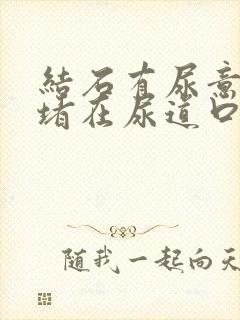 結石有尿意
堵在尿道口
随我一起向天